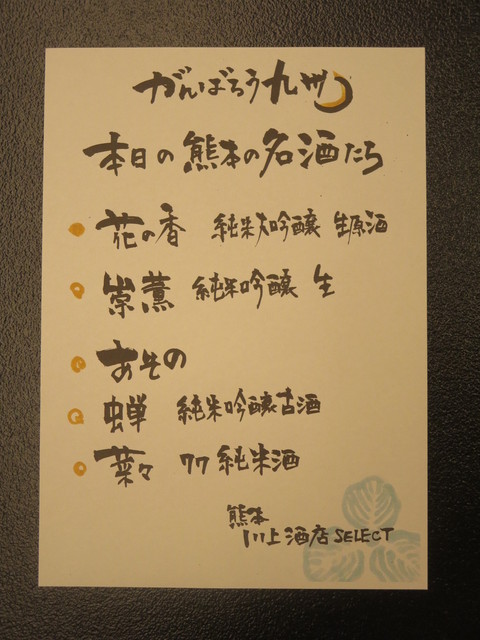 がんばろう九州
本日の熊本の名酒たち
花の香 純米大吟醸 生原酒
崇薫 純米吟醸 生
あその
蝉 純米吟醸古酒
菜々 77純米酒
熊本
川上酒店SELECT